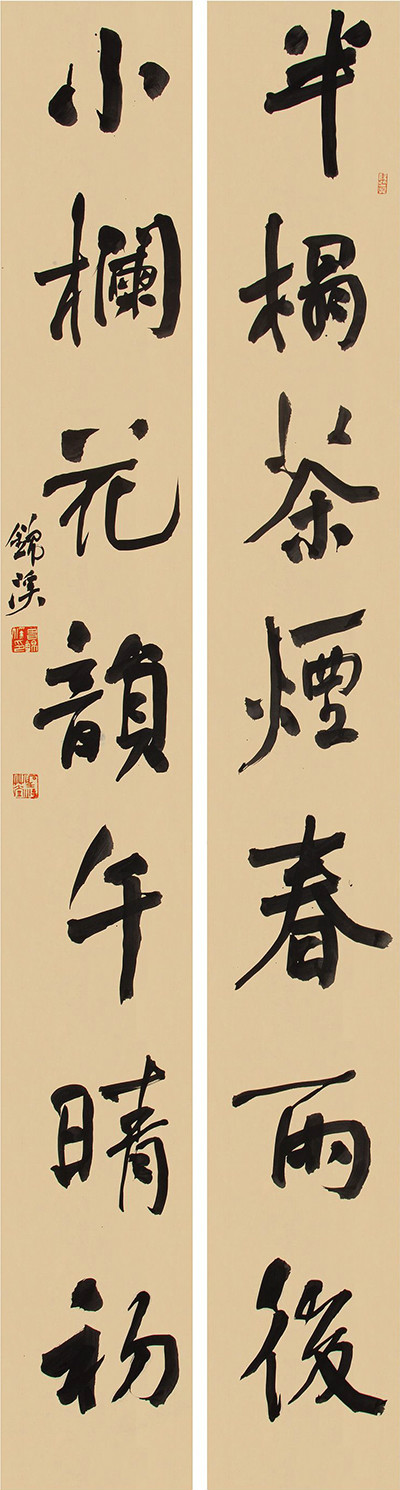 半榻茶煙春雨後
小欄花韻午晴初
錦溪